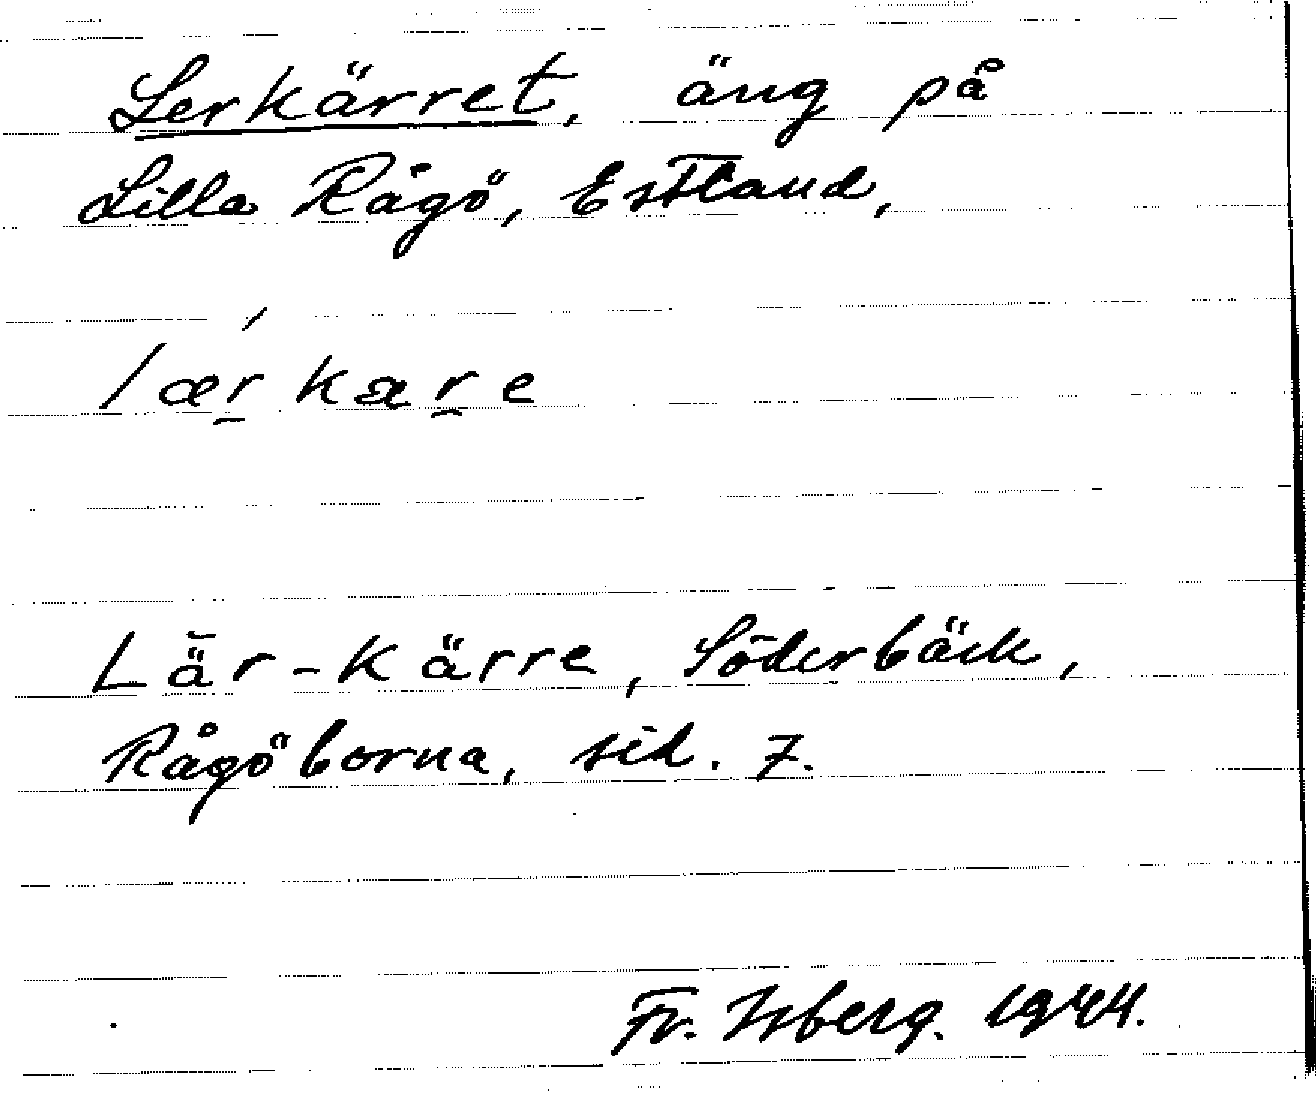 Lerkärret, äng på
Lilla Rågö, Estland,
lær̠kær̠e
Lä̅r-kärre, Söderbäck,
Rågöborna, sid. 7.
Fr. Isberg. 1944.